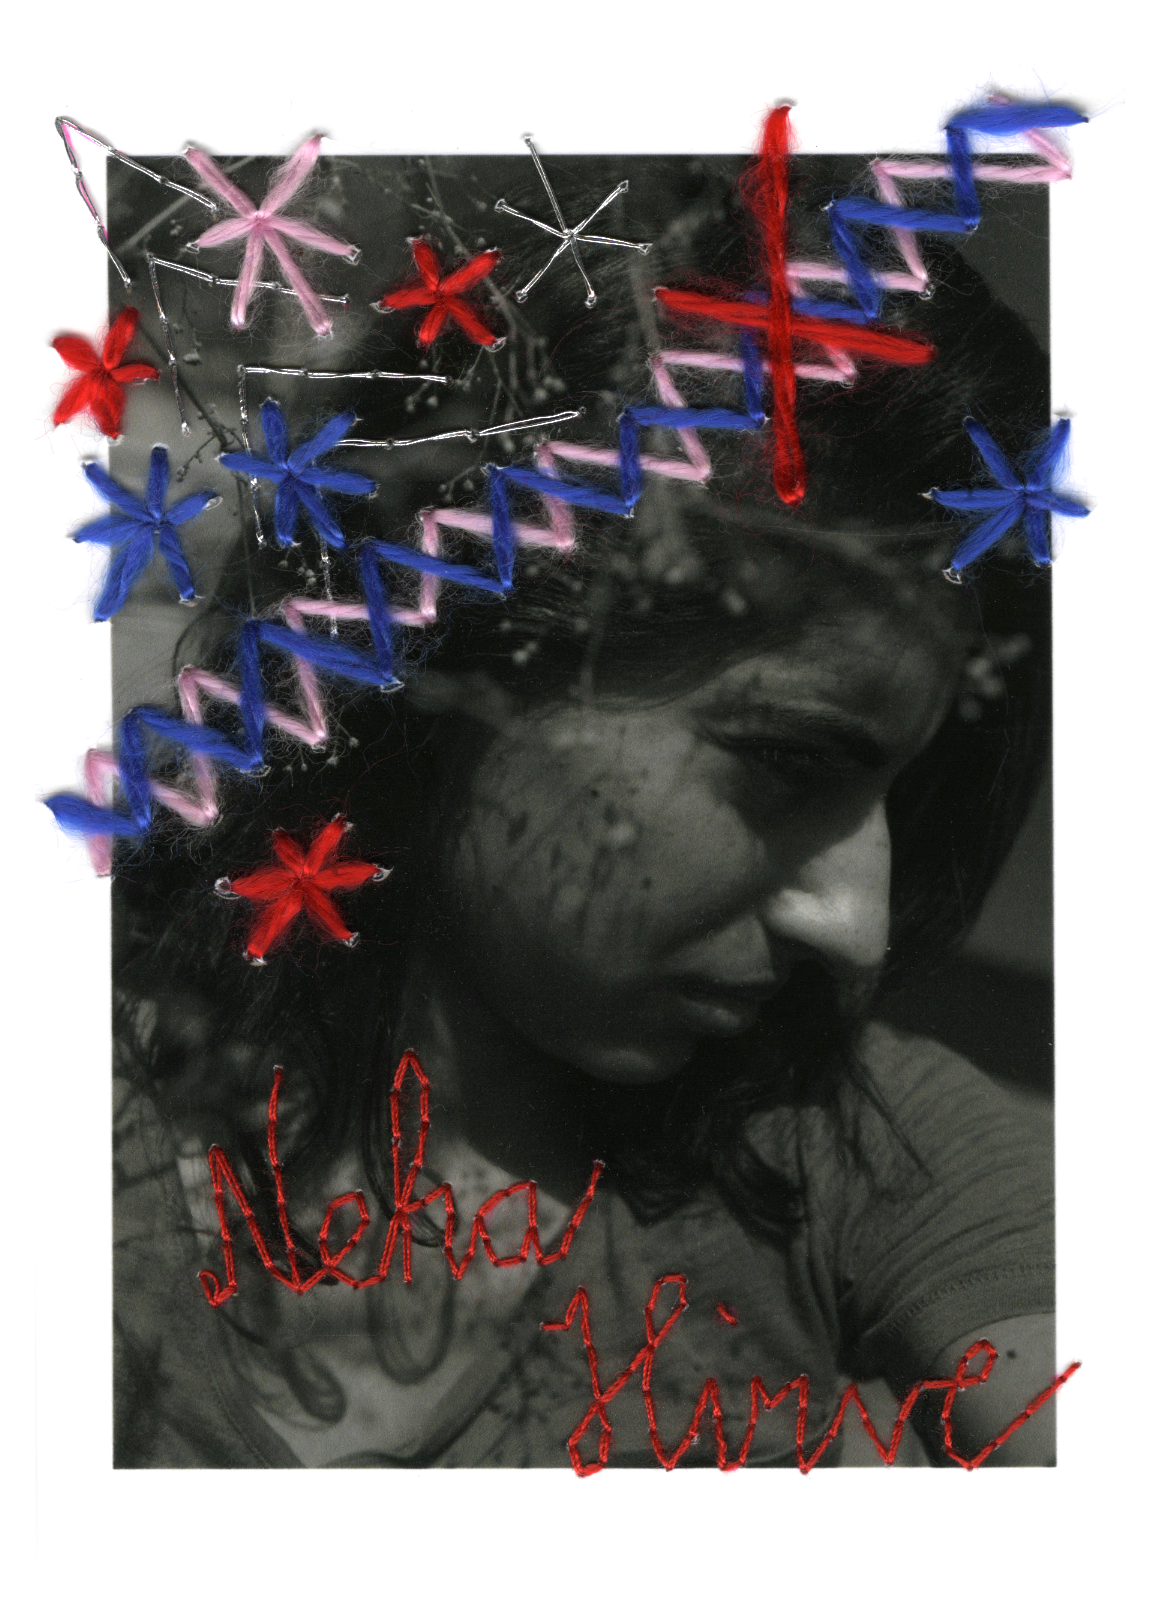 Neha
Hirve